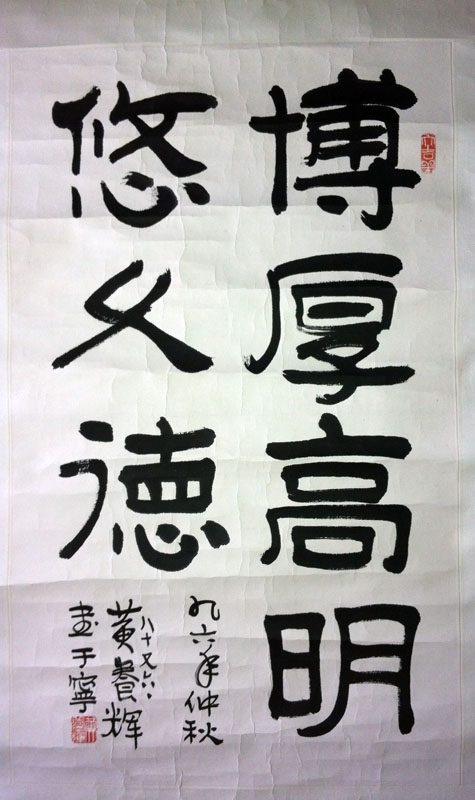 博厚高明
悠久德
九六年仲秋
八十又六
黄养辉
书于宁